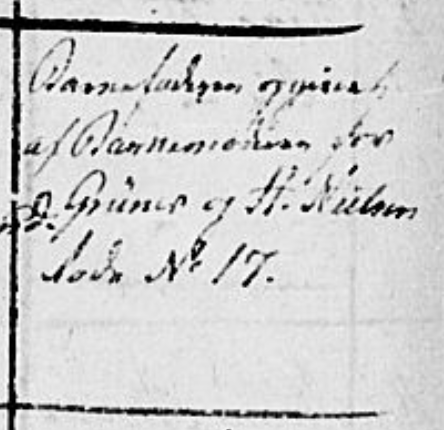 Barnefaderen opgivet
af Barnemoderen for
Grüner og H. Nielsen
lode No 17.